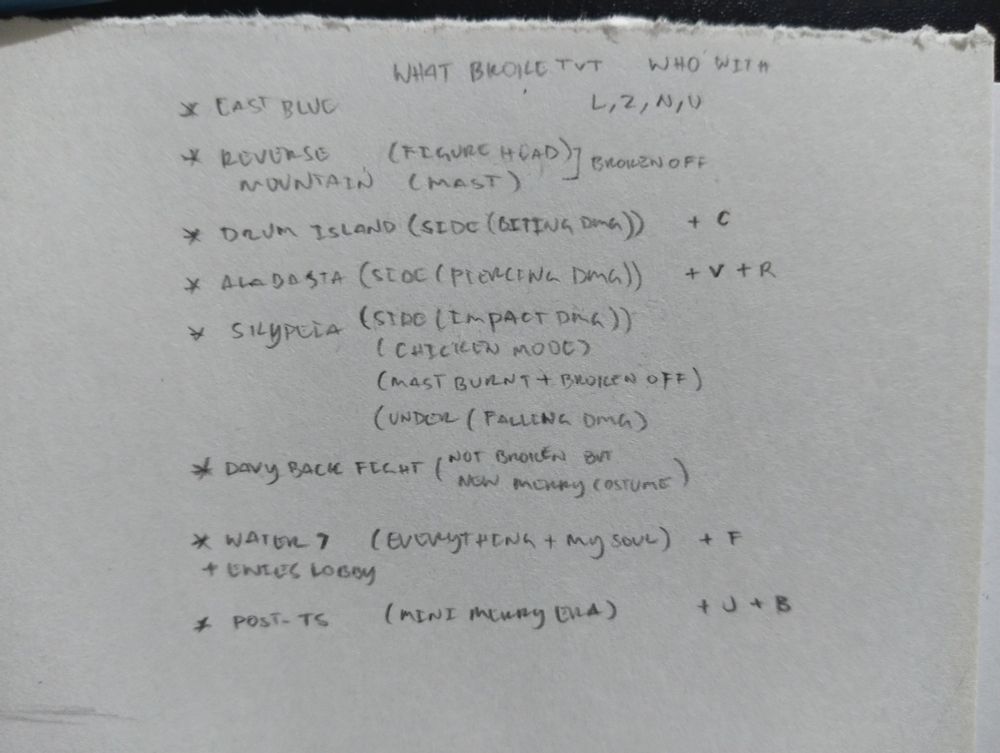 WHAT BROKE TVT WHO WITH
* EAST BLUE L, Z, N, U
* REVERSE (FIGURE HEAD)] BROKEN OFF
MOUNTAIN (MAST)
* DRUM ISLAND (SIDE (BITING DMG)) + C
* ALABASTA (SIDE (PIERCING DMG)) + V + R
* SKYPEIA (SIDE (IMPACT DMG))
(CHICKEN MODE)
(MAST BURNT + BROKEN OFF)
(UNDER (FALLING DMG)
* DAVY BACK FIGHT (NOT BROKEN BUT
NEW MERRY COSTUME)
* WATER 7 (EVERYTHING + MY SOUL) + F
+ ENIES LOBBY
* POST-TS (MINI MERRY ERA) + J + B